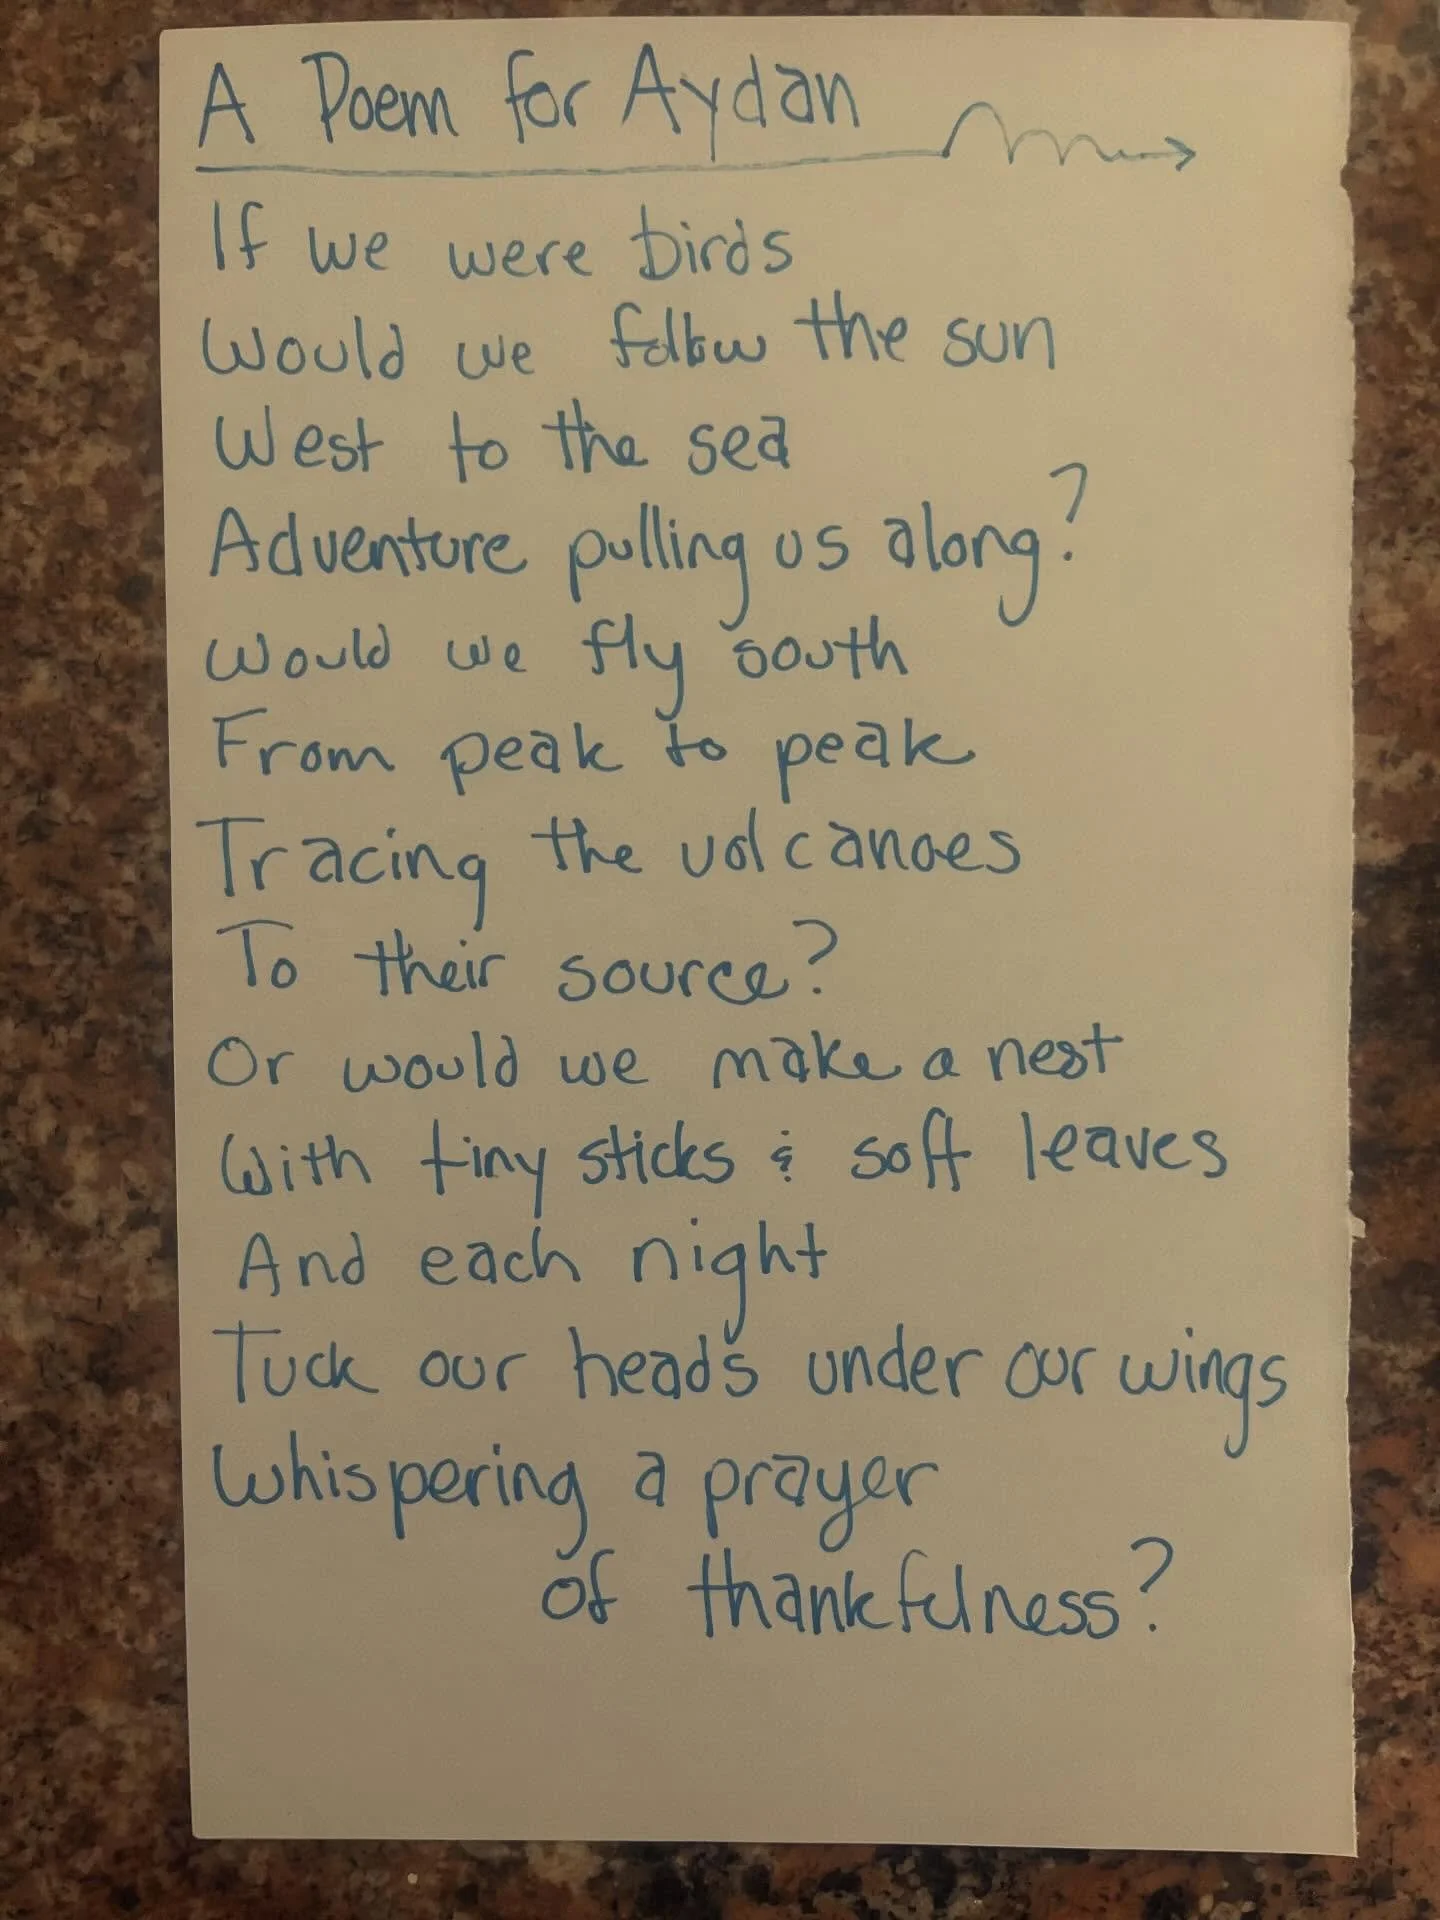 A Poem for Aydan
If we were birds
Would we follow the sun
West to the sea
Adventure pulling us along?
Would we fly south
From peak to peak
Tracing the volcanoes
To their source?
Or would we make a nest
With tiny sticks & soft leaves
And each night
Tuck our heads under our wings
Whispering a prayer
of thankfulness?